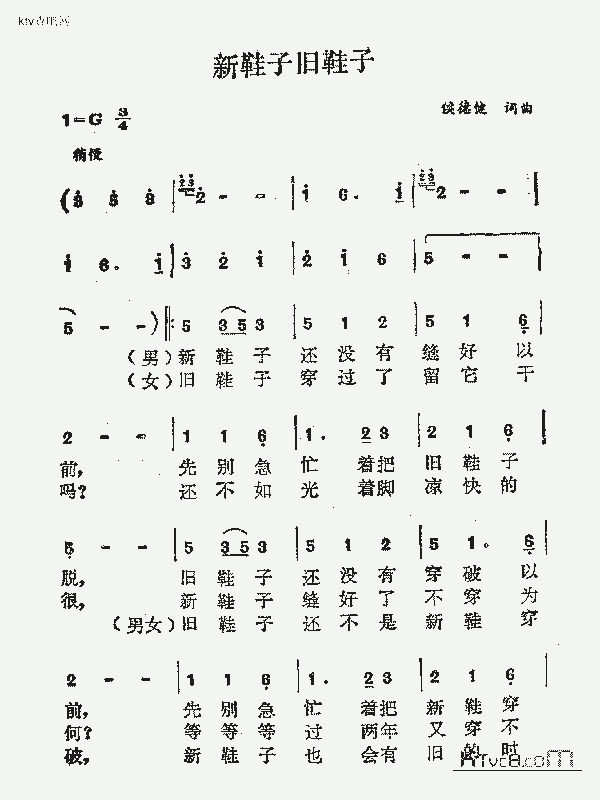 新鞋子旧鞋子
1=G 3/4
侯德健 词曲
稍慢
(3 5 3 | 2 3 2 - - | 1 6. 1 | 2 3 2 - - |
1 6. 1 | 3 2 1 | 2 1 6 | 5 - - |
5 - - ) ‖: 5 3 5 3 | 5 1 2 | 5 1 6 |
(男)新 鞋 子 还 没 有 缝 好 以
(女)旧 鞋 子 穿 过 了 留 它 干
2 - - | 1 1 6 | 1. 2 3 | 2 1 6 |
前, 先 别 急 忙 着把 旧 鞋 子
吗? 还 不 如 光 着脚 凉 快 的
5 - - | 5 3 5 3 | 5 1 2 | 5 1. 6 |
脱, 旧 鞋 子 还 没 有 穿 破 以
很, 新 鞋 子 缝 好 了 不 穿 为
(男女)旧 鞋 子 还 不 是 新 鞋 穿
2 - - | 1 1 6 | 1. 2 3 | 2 1 6 |
前, 先 别 急 忙 着把 新 鞋 穿
何? 等 等 等 过 两年 又 穿 不
破, 新 鞋 子 也 会有 旧 的 时